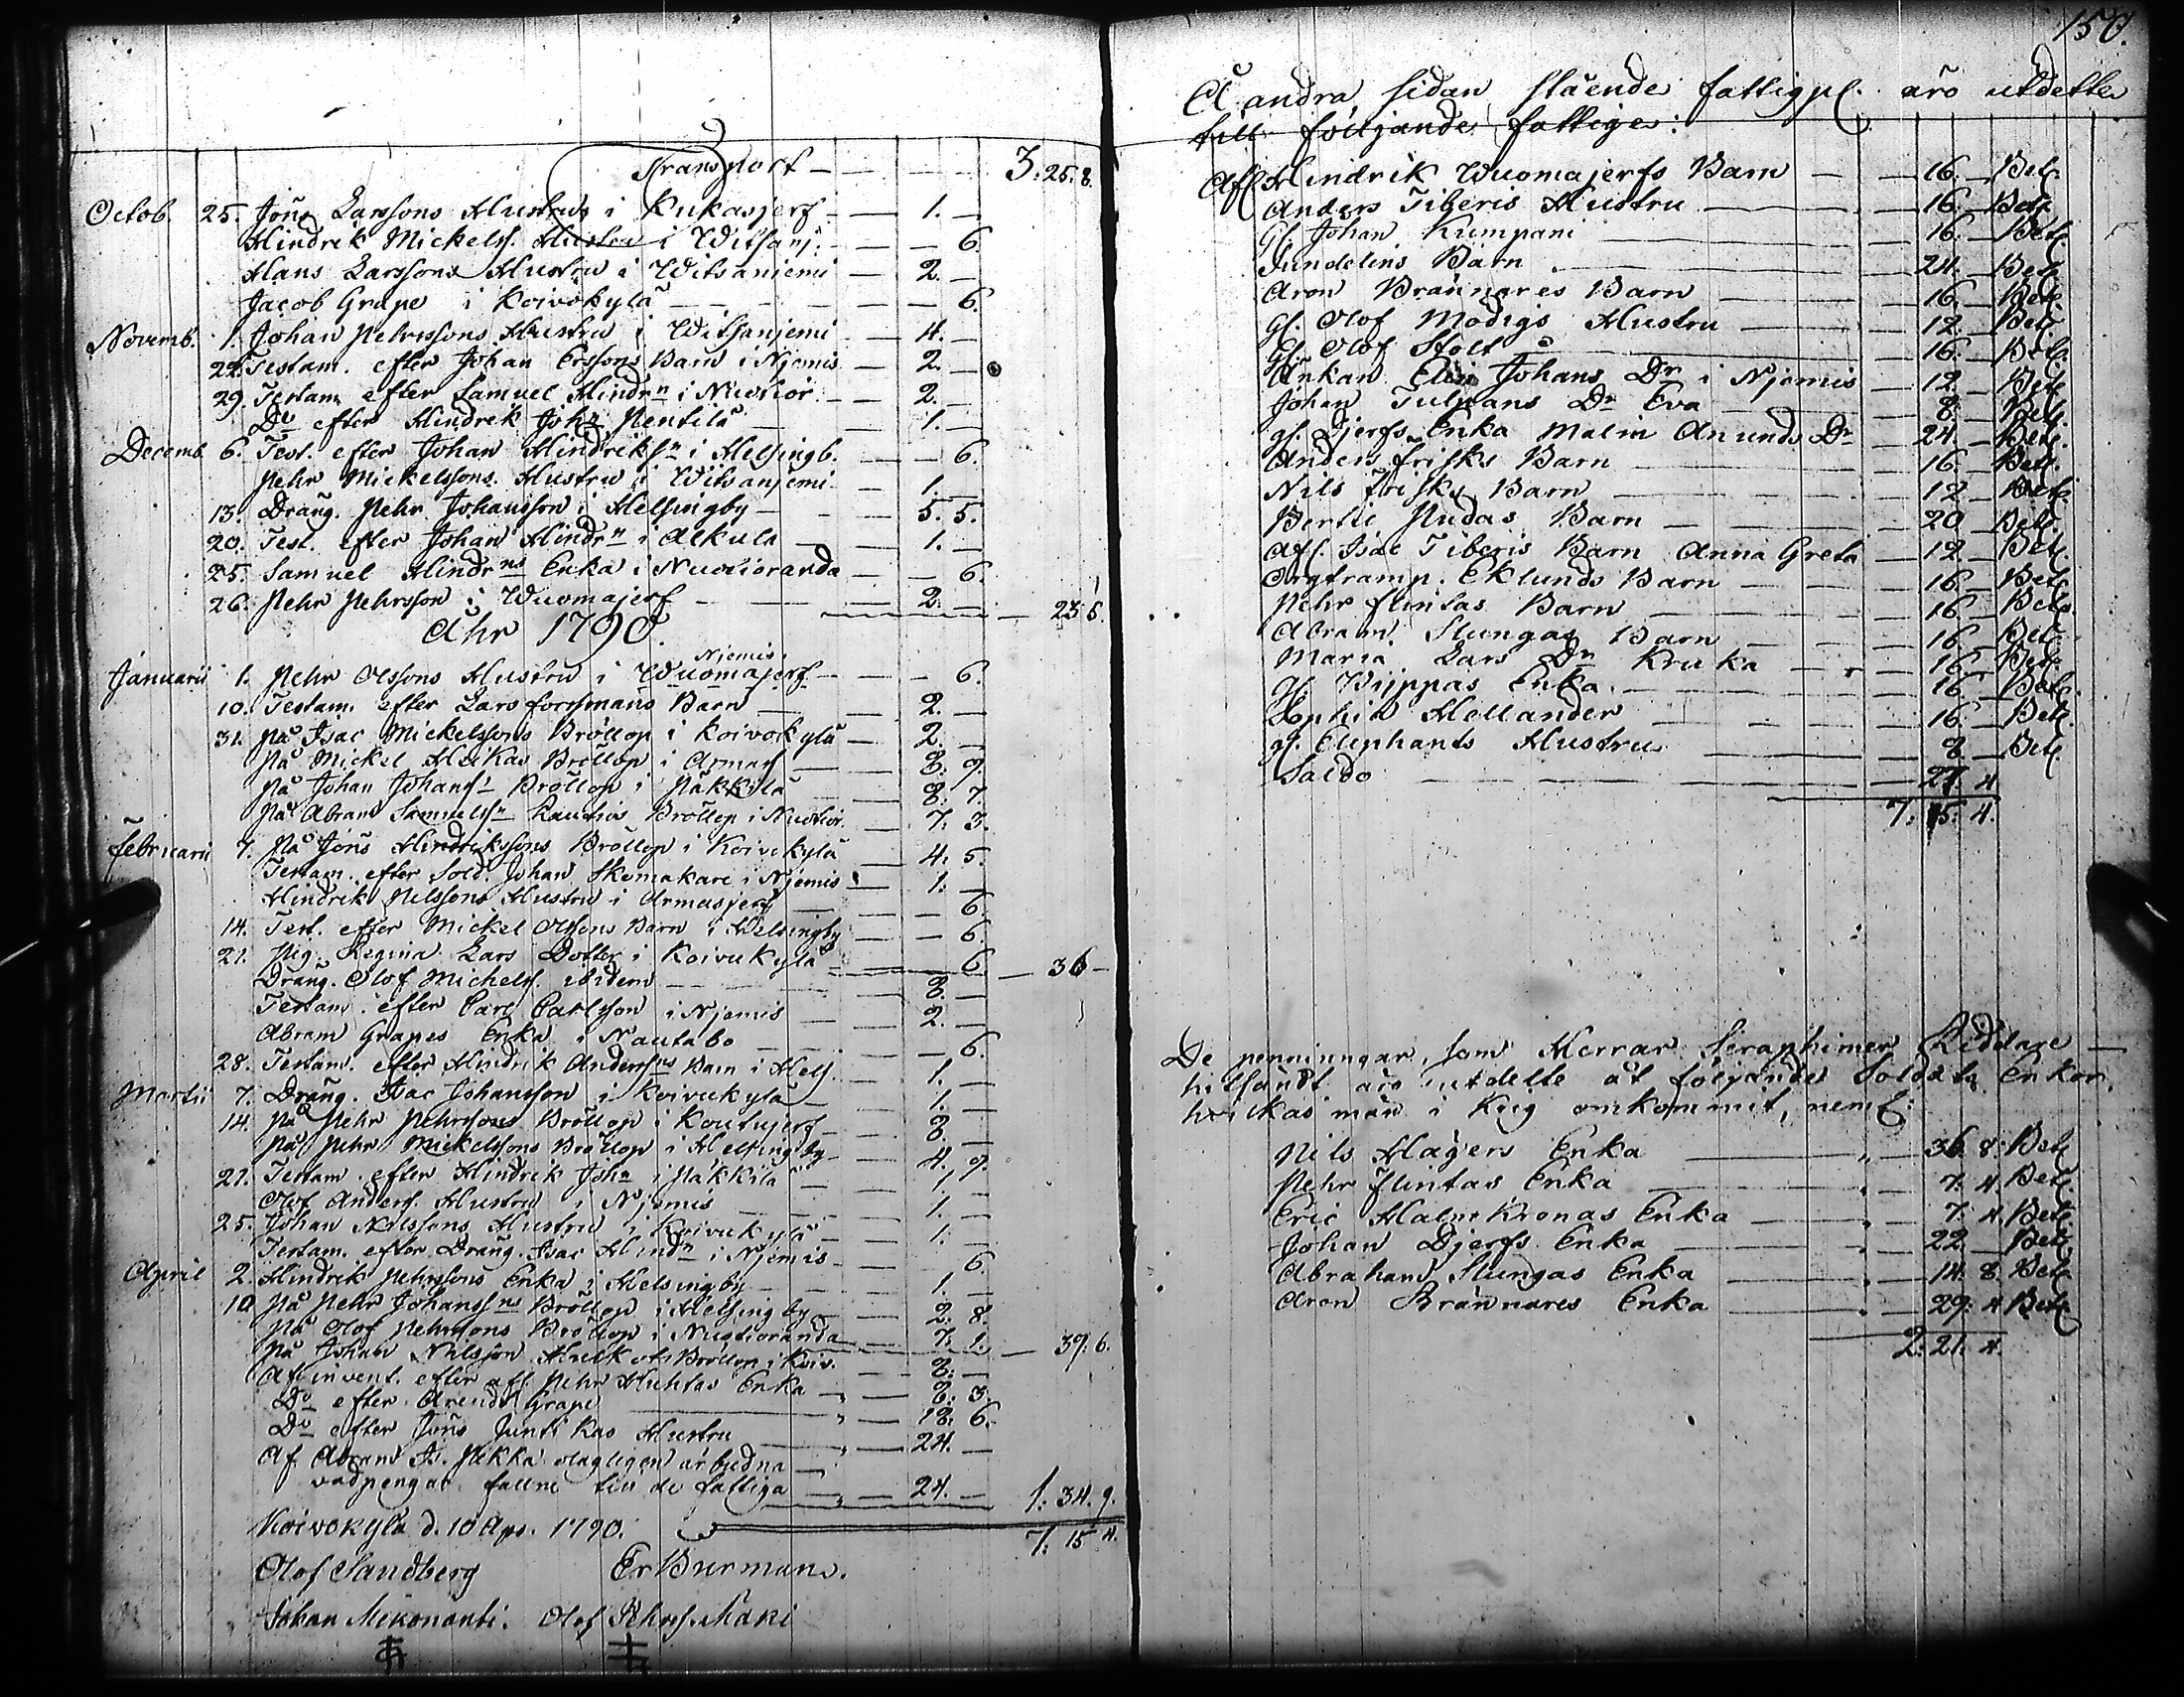 Transport — 3. 25. 8.
Octob. 25. Jöns Larssons Hustru i Kukasjerf — 1. —
Hindrik Mickelss. Hustru i Witsanj. — 6.
Hans Larssons Hustru i Witsaniemi — 2. —
Jacob Grape i Koivokylä — 6.
Novemb. 1. Johan Pehrssons Hustru i Witsanjemi — 4. —
22. Testam. efter Johan Erssons Barn i Njemis — 2. —
29. Testam. efter Samuel Hindr:n i Nuotior — 2. —
D:o efter Hindrik Joh:n Pentilä — 1. —
Decemb. 6. Test. efter Johan Hindriks:n i Helsingb. — 6.
Pehr Mickelssons Hustru i Witsanjemi — 1. —
13. Dräng. Pehr Johansson i Helsingby — 5. 5.
20. Test. efter Johan Hindr:n i Alkula — 1. —
25. Samuel Hindr:ns Enka i Nuotioranda — 6.
26. Pehr Pehrsson i Wuomajerf — 2. — 23. 5.
Åhr 1790.
Njemis
Januarii 1. Pehr Olssons Hustru i Wuomajerf — 6.
10. Testam. efter Lars Forssmans Barn — 2. —
31. På Isac Mickelssons Bröllop i Koivokylä — 2. —
På Mickel Heikas Bröllop i Armas — 8. 9.
På Johan Johans:n Bröllop i Päkkilä — 8. 7.
På Abram Samuels:n Rautios Bröllop i Nuotior. — 7. 3.
Februarii 7. På Jöns Hindrikssons Bröllop i Koivukylä — 4. 5.
Testam. efter Sold. Johan Skomakare i Njemis — 1. —
Hindrik Nilssons Hustru i Armasjerf — 6.
14. Test. efter Mickel Olssons Barn i Helsingby — 6.
21. Pig. Regina Lars Dotter i Koivukylä — 6. — 36 —
Dräng. Olof Michelss. ibidem — 8. —
Testam. efter Carl Carlsson i Njemis — 2. —
Abram Grapes Enka i Nautabo — 6.
28. Testam. efter Hindrik Anderss:ns Barn i Hels. — 1. —
Martii 7. Dräng. Isac Johansson i Koivukylä — 1. —
14. På Pehr Pehrssons Bröllop i Koutujerf — 8. —
På Pehr Mickelssons Bröllop i Helsingby — 4. 9.
21. Testam. efter Hindrik Joh:n i Päkkilä — 1. —
Olof Anderss. Hustru i Njemis — 1. —
25. Johan Nilssons Hustru i Koivukylä — 1. —
Testam. efter Dräng. Isac Hind:n i Njemis — 6.
April 2. Hindrik Pehrssons Enka i Helsingby — 1. —
10. På Pehr Johanss:ns Bröllop i Helsingby — 2. 8.
På Olof Pehrssons Bröllop i Nuotioranda — 7. 1. — 39. 6.
På Johan Nilsson Bröllop i Koiv. — 8. —
Af invent. efter afl. Pehr Huhtas Enka — 8. 3.
D:o efter Arendt Grape — 18. 6.
D:o efter Jöns Juntikas Hustru — 24. —
Af Abram Is. Pekka olagligen
vadpengar fallne till de fattiga — 24. — 1. 34. 9.
7. 15. 4.
Koivokylä d. 10 Apr. 1790.
Olof Sandberg Er Burman.
Johan Mekonanti. Olof Pehrss. Maki
150.
Å andra sidan stående fattigp:r äro utdelte
till följande fattige:
Afl. Hindrik Wuomajerfs Barn — 16. — Bet.
Anders Tiberis Hustru — 16. — Bet.
Gl. Johan Kumpani — 16. — Bet.
Sundelins Barn — 24. — Bet.
Aron Brännares Barn — 16. — Bet.
Gl. Olof Modigs Hustru — 12. — Bet.
Gl. Olof Stolt — 16. — Bet.
Enkan Elin Johans D:r i Njemis — 12. — Bet.
Johan Tulpans D:r Eva — 8. — Bet.
gl. Djerfs Enka Malin Anunds D:r — 24. — Bet.
Anders Frisks Barn — 16. — Bet.
Nils Frisks Barn — 12. — Bet.
Bertil Pudas Barn — 20. — Bet.
Afl. Isac Tiberis Barn Anna Greta — 12. — Bet.
Orgtramp. Eklunds Barn — 16. — Bet.
Pehr Flintas Barn — 16. — Bet.
Abram Slungas Barn — 16. — Bet.
Maria Lars D:r Kruka — 16. — Bet.
gl. Wippas Enka — 16. — Bet.
Sophia Hellander — 16. — Bet.
gl. Elephants Hustru — 8. — Bet.
Saldo — 27. 4.
7. 15. 4.
De penningar, som Herrar Seraphimer Riddare
hitsändt äro utdelte åt följande Soldate Enkor,
hvilkas män i Krig omkommit, neml:
Nils Hagers Enka — 36. 8. Bet.
Pehr Flintas Enka — 7. 4. Bet.
Eric Malmkronas Enka — 7. 4. Bet.
Johan Djerfs Enka — 22. — Bet.
Abraham Slungas Enka — 14. 8. Bet.
Aron Brännares Enka — 29. 4. Bet.
2. 21. 4.